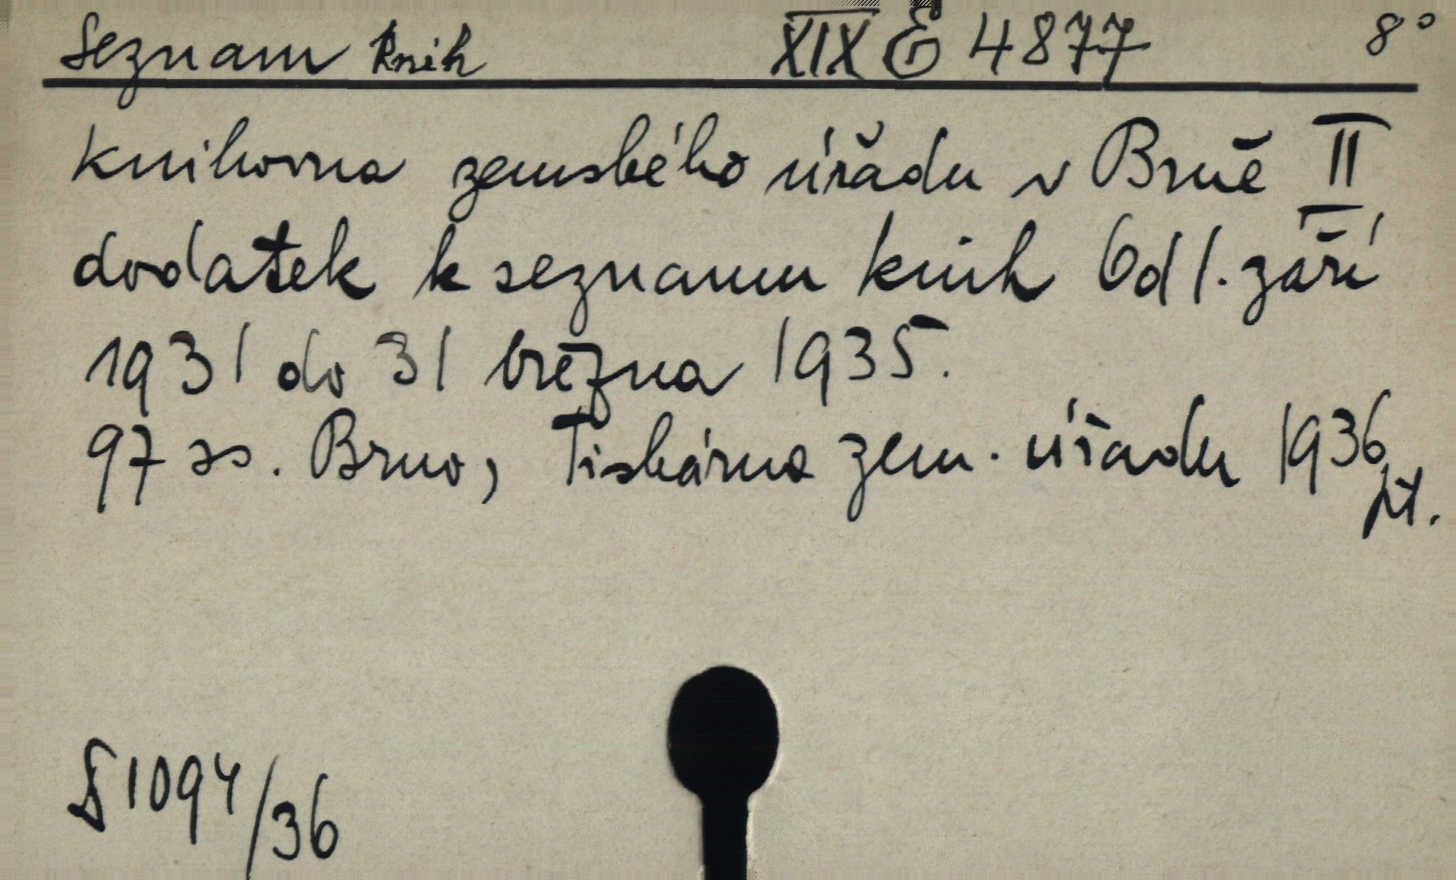 Seznam knih XIX E 4877 8°
Knihovna zemského úřadu v Brně II
dodatek k seznamu knih Od 1. září
1931 do 31 března 1935.
97 ss. Brno, Tiskárna zem. úřadu 1936
pt.
§ 1094/36